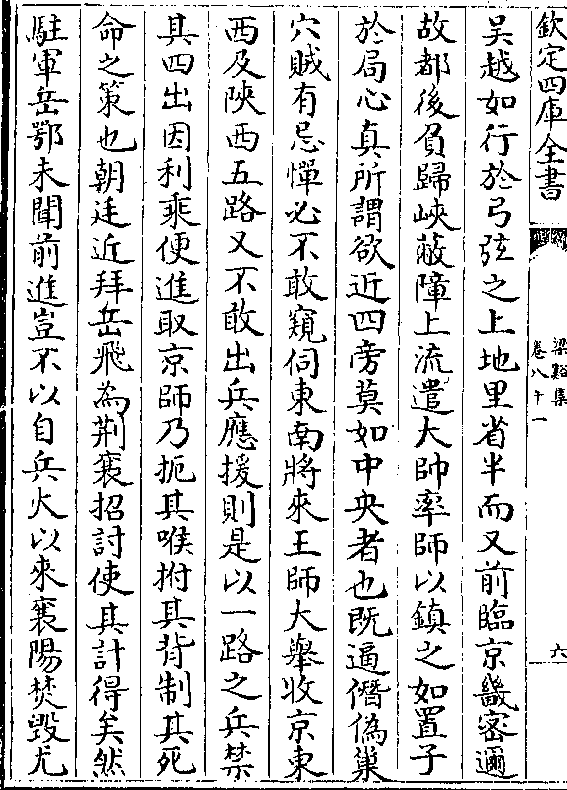 欽定四庫全書
梁谿集
卷八十一
六
吳越如行於弓弦之上地里省半而又前臨京畿密邇
故都後負歸峽蔽障上流遣大帥率師以鎮之如置子
於局心真所謂欲近四旁莫如中央者也既逼僭偽巢
穴賊有忌憚必不敢窺伺東南將來王師大舉收京東
西及陜西五路又不敢出兵應援則是以一路之兵禁
其四出因利乘便進取京師乃扼其喉拊其背制其死
命之策也朝廷近拜岳飛為荆襄招討使其計得矣然
駐軍岳鄂未聞前進豈不以自兵火以來襄陽焚毀尤